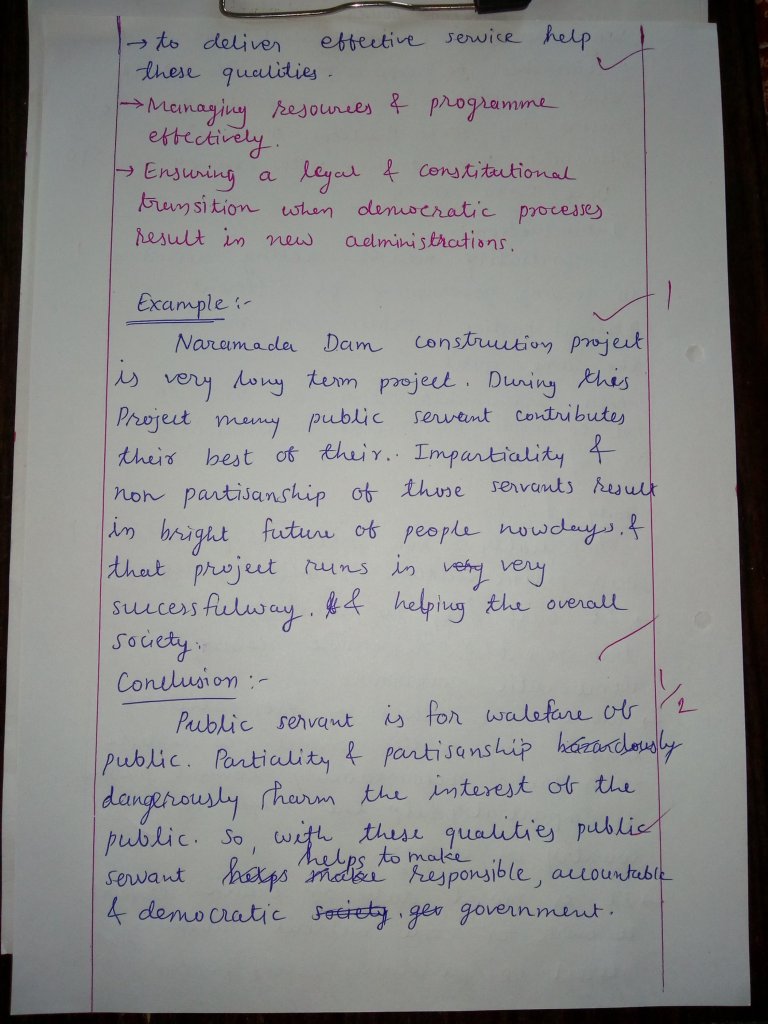 → to deliver effective service help
these qualities.
→ Managing resources & programme
effectively.
→ Ensuring a legal & constitutional
transition when democratic processes
result in new administrations.
Example :-
1
Naramada Dam construction project
is very long term project. During this
Project many public servant contributes
their best of their.. Impartiality &
non partisanship of those servants result
in bright future of people nowdays. &
that project runs in very very
successfulway. & & helping the overall
society.
Conclusion :-
1/2
Public servant is for walefare of
public. Partiality & partisanship hazardously
dangerously harm the interest of the
public. So, with these qualities public
helps to make
servant helps make responsible, accountable
& democratic society. gov government.